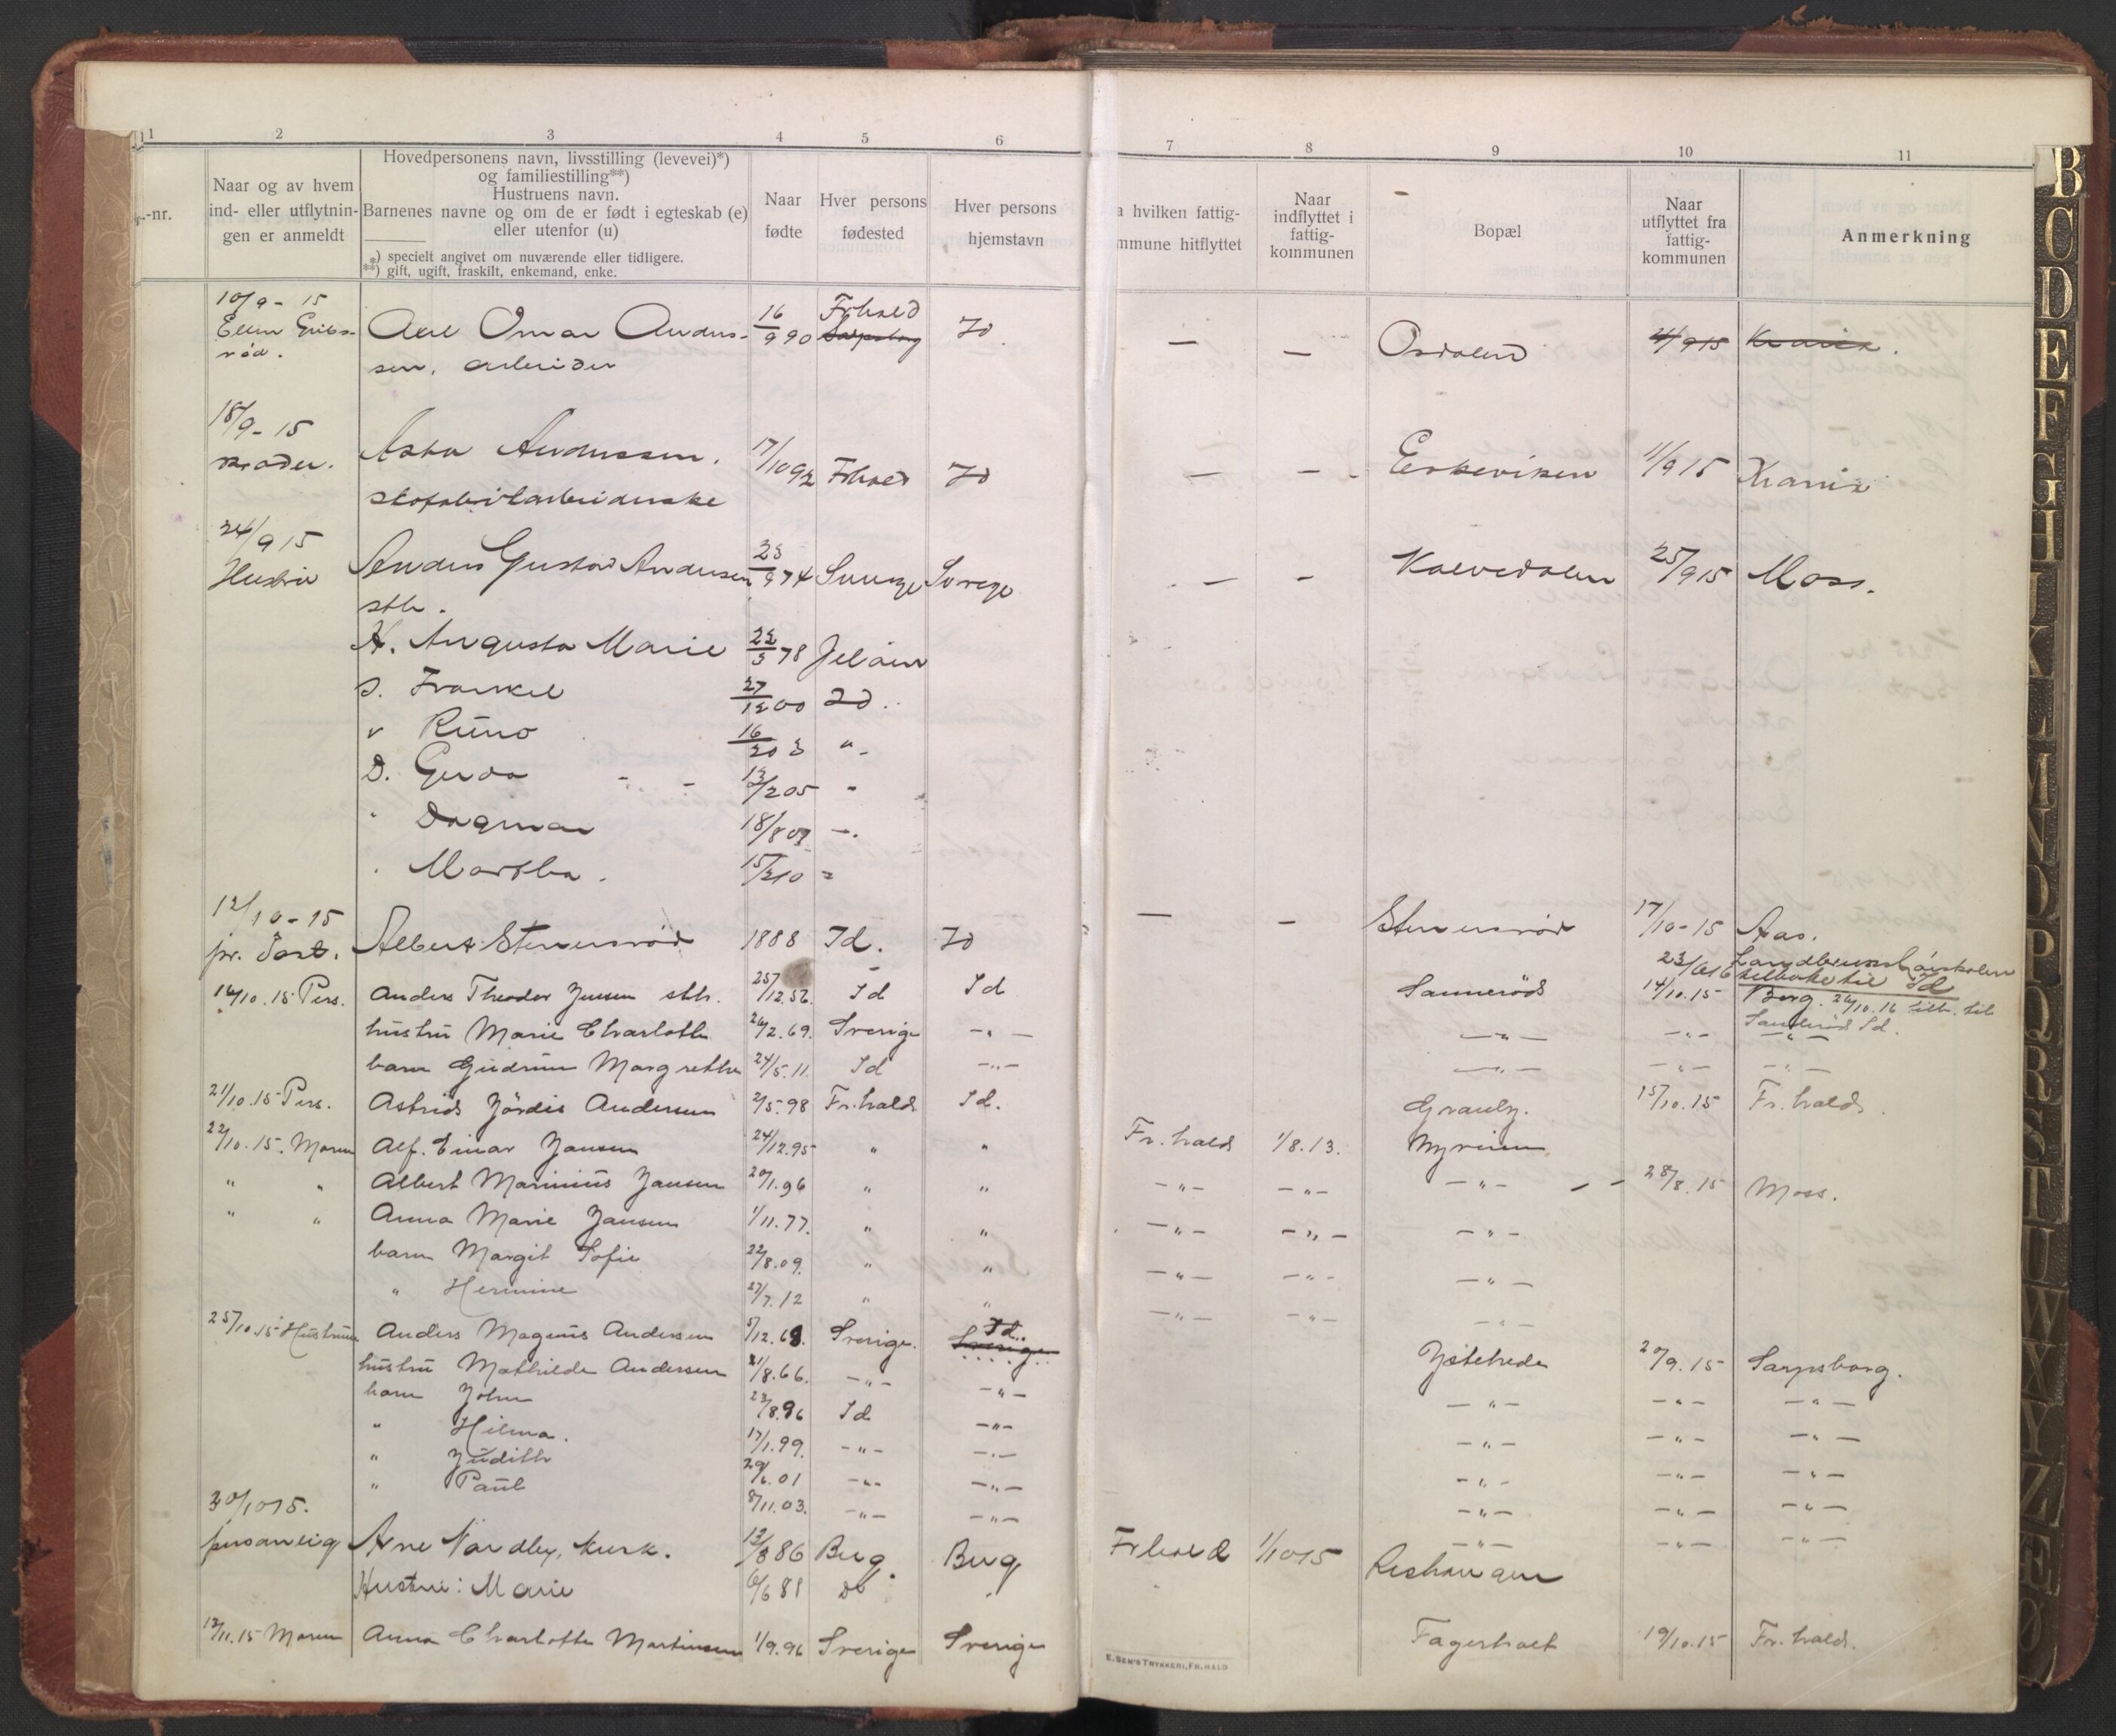 1 2 3 4 5 6 7 8 9 10 11
-nr.
Naar og av hvem ind- eller utflytnin- gen er anmeldt
Hovedpersonens navn, livsstilling (levevei)*)
og familiestilling**)
Hustruens navn.
Barnenes navne og om de er født i egteskab (e)
eller utenfor (u)
*) specielt angivet om nuværende eller tidligere.
**) gift, ugift, fraskilt, enkemand, enke.
Naar fødte
Hver persons fødested
Hver persons hjemstavn
a hvilken fattig-
mmune hitflyttet
Naar indflyttet i fattig- kommunen
Bopæl
Naar utflyttet fra fattig- kommunen
Anmerkning
10/9 - 15 Frhald
Axel Omar Anders- 16/9 90 Sarpsborg Id — — Osdalen 11/9 15
sen, arbeider
18/9 - 15
Asta Anderssen. 17/10 92 Frhald Id — — Erkeviken 11/9 15
skofabrikarbeiderske
24/9 15
Hustru Anders Gustav Andersen 23/9 74 Sverige Sverige — — Kalvedalen 25/9 15 Moss.
stb.
H. Augusta Marie 22/3 78 Jeløen
S. Frankel 27/12 00 Id.
" Runo "
D. Gerda 13/2 05 "
" Dagmar 18/8 07 "
" Martha. 15/2 10 "
12/10 - 15
pr. Post. Albert Stenersrød 1888 Id. Id — — Stenersrød 17/10 - 15 Aas.
23/6 16 Landbrukshøiskolen
tilbake til Id
14/10.15 Pers. Anders Theodor Jensen stb. 25/12.56. Id Id Sannerød 14/10.15 Berg. 26/10.16 tilb. til
Sannerød Id.
hustru Marie Charlotte 26/2.69. Sverige —"— —"— —"— —"—
barn Gudrun Margrethe 24/5.11. Id —"— —"— —"— —"—
21/10.15 Pers. Astrid Jördis Andersen 2/5.98 Fr.hald Id. Granly. 15/10.15 Fr.hald.
22/10.15. Moren Alf. Einar Jansen 24/12.95 " " Fr.hald 1/8.13. Myrinen
" " Albert Marinius Jansen 20/1.96 " " —"— —"— —"— 28/8.15 Moss.
" " Anna Marie Jansen 1/11.77. " " —"— —"— —"—
barn Margit Sofie 22/8.09. " " —"— —"— —"—
" Hermine 27/7.12 " " —"— —"— —"—
25/10.15 Hustruen Anders Magnus Andersen 5/12.68. Sverige. Sverige Id. Ystehede 20/9.15 Sarpsborg.
hustru Mathilde Andersen 21/8.66. —"— —"— —"— —"— —"—
barn John 23/8.96 Id —"— —"— —"— —"—
" Hilma. 17/1.99. —"— —"— —"— —"— —"—
" Judith 29/6.01 —"— —"— —"— —"— —"—
" Paul 8/11.03. —"— —"— —"— —"— —"—
30/10 15.
personlig Arne Nordby, 13/8 86 Berg. Berg Frhald 1/10 15 Rishaugen
Hustru: Marie 6/6 88 do "
13/11.15 Moren Anna Charlotte Martinsen 1/9.96 Sverige Sverige Fagerholt 19/10.15 Fr.hald.
E. SEM'S TRYKKERI, FR.HALD
B C D E F G H I K L M N O P Q R S T U W X Y Z Æ Ø